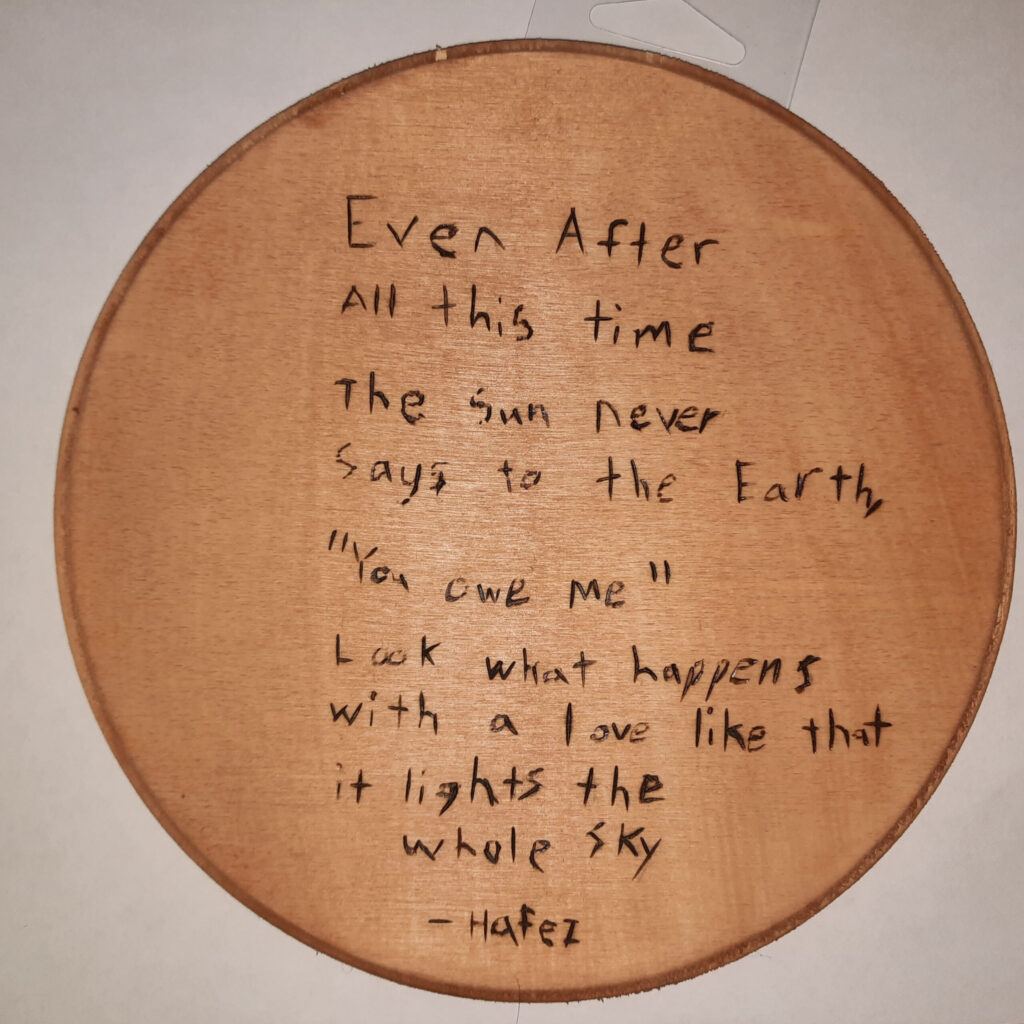 Even After
All this time
The Sun never
Says to the Earth,
"You owe me"
Look what happens
with a love like that
it lights the
whole sky
- Hafez